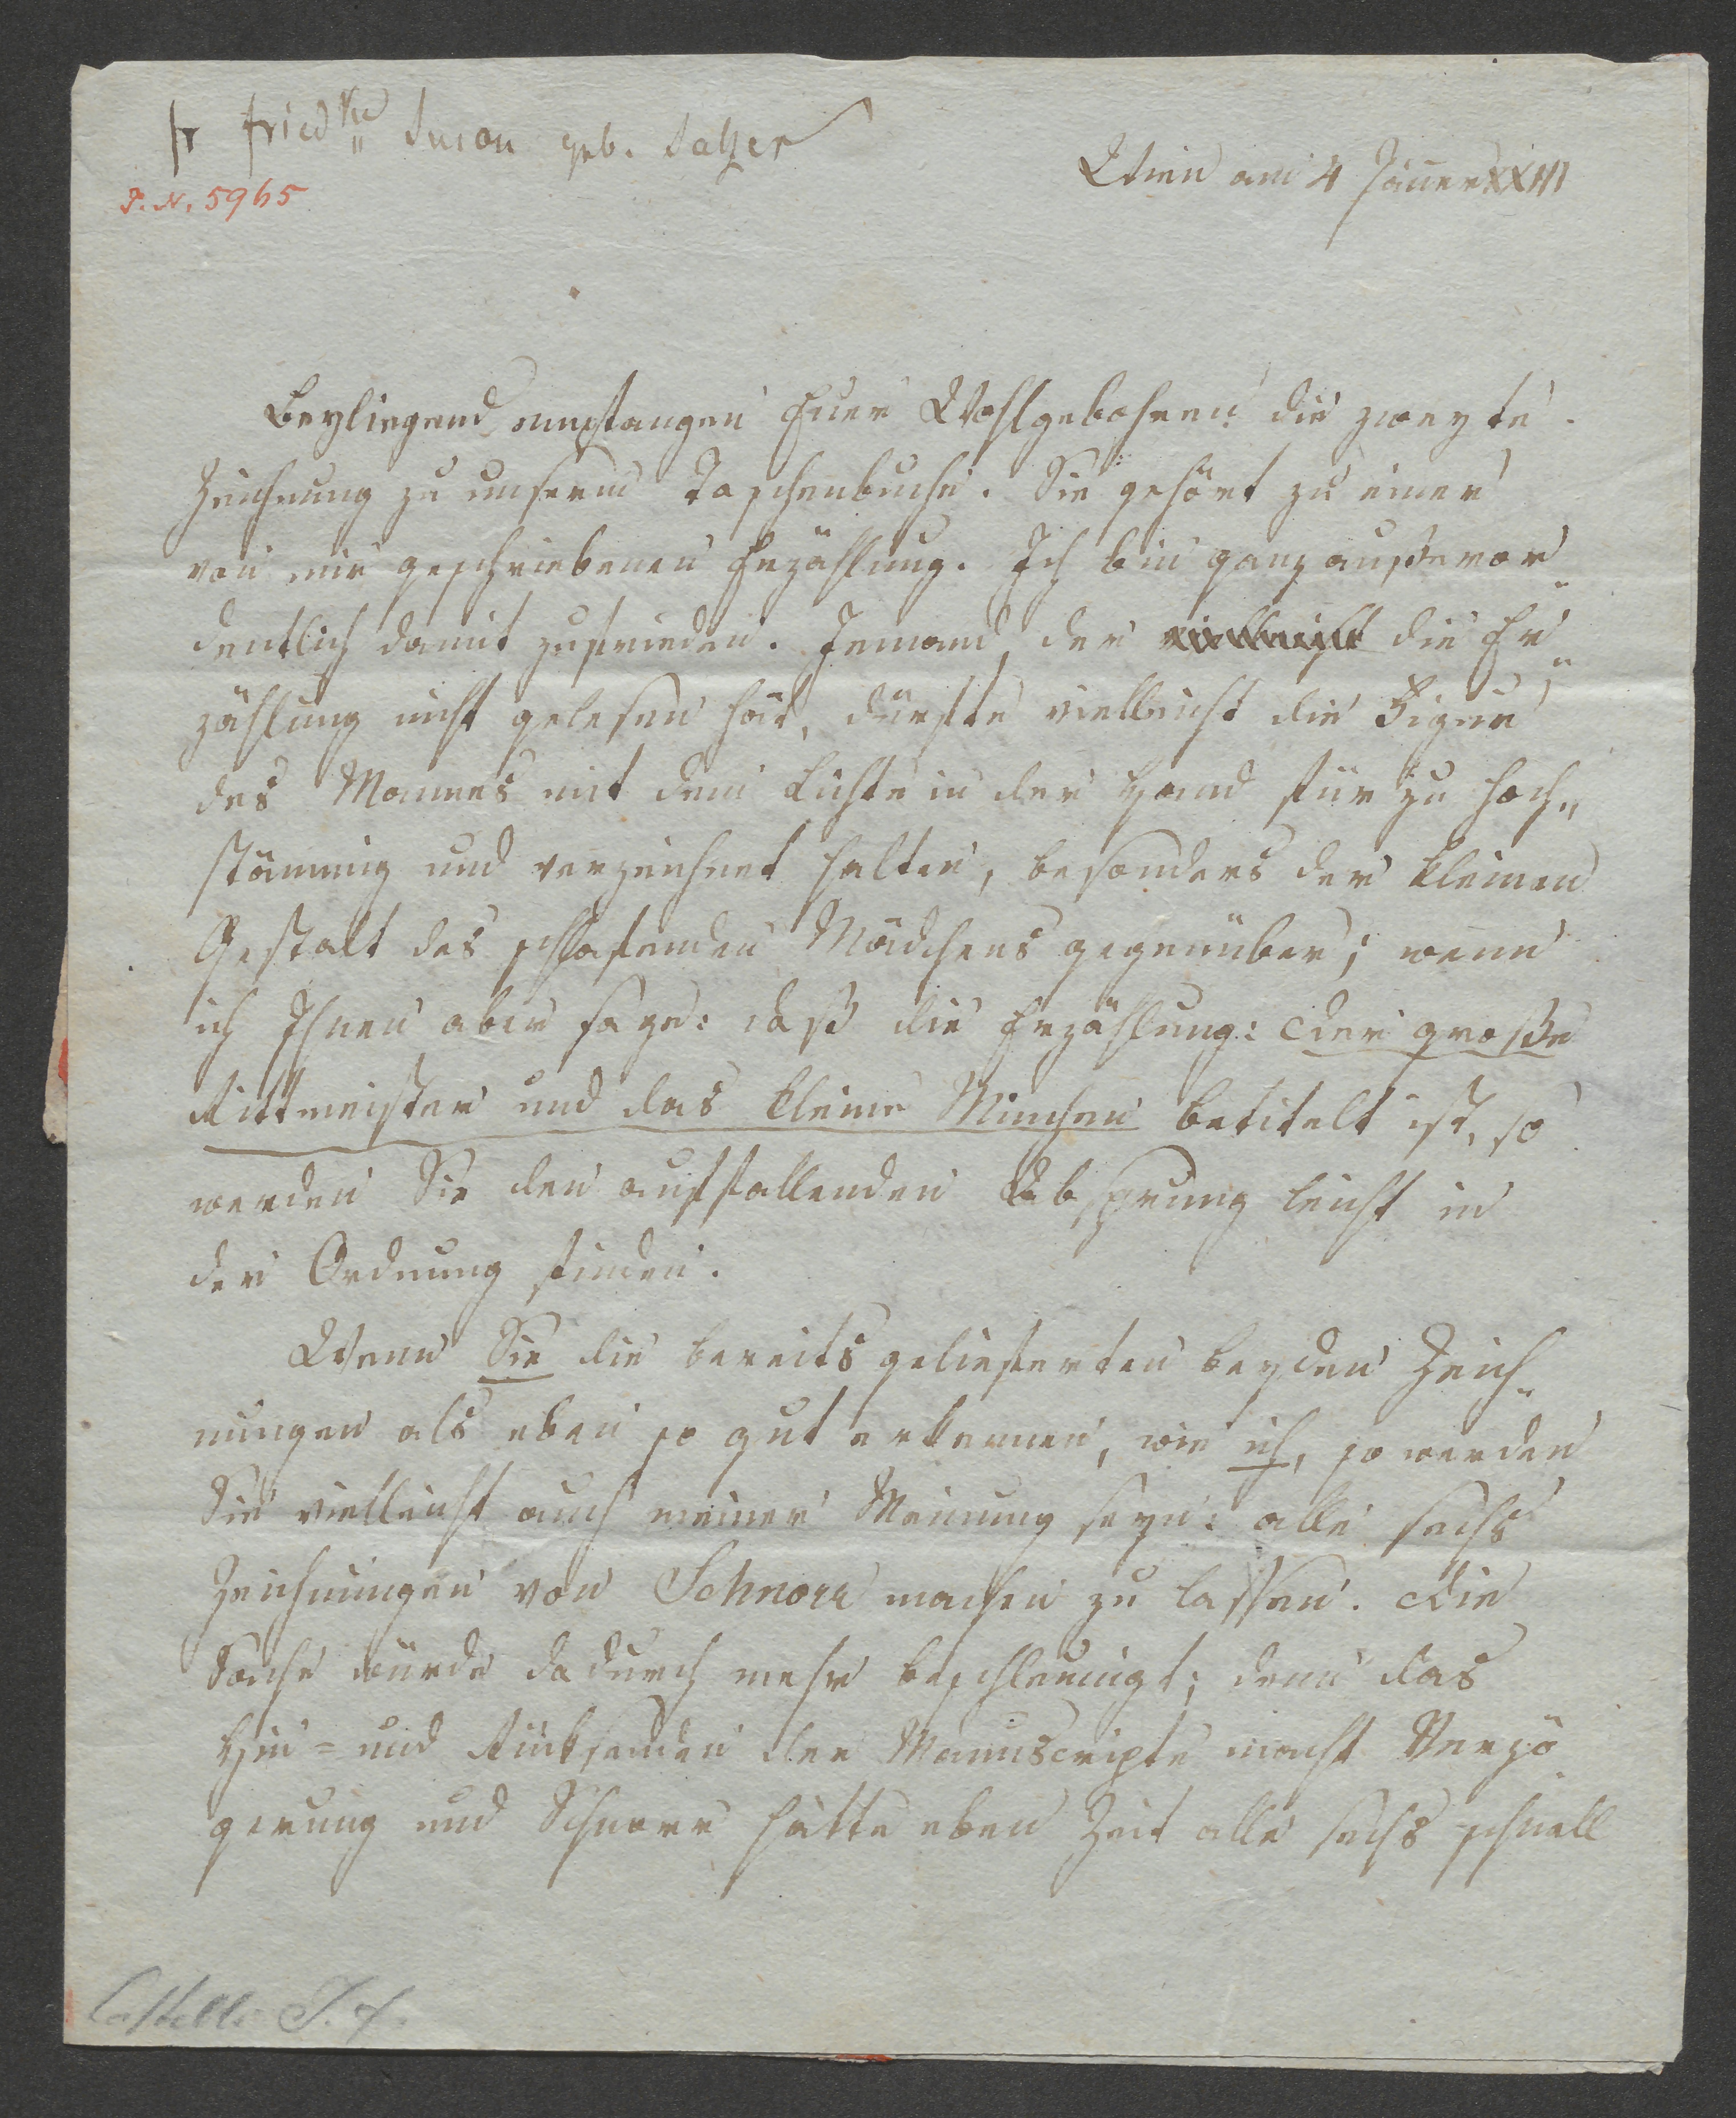 fr Fried Suson geb. Salzer
Wien am 4 Jäner XXIII
P. N. 5965
Beyliegend empfangen Euer Wohlgebohren die zweyte
Zeichnung zu unserm Taschenbuche. Sie gehört zu einer
von mir geschriebenen Erzählung. Ich bin ganz außeror„
dentlich damit zufrieden. Jemand, der die Er„
zählung nicht gelesen hat, dürfte vielleicht die Figur
des Mannes mit dem Lichte in der Hand für zu hoch„
stämmig und verzeichnet halten, besonders der kleinen
Gestalt des schlafenden Mädchens gegenüber; wenn
ich Ihnen aber sage: daß die Erzählung: der große
Rittmeister und das kleine Minchen betitelt ist, so
werden Sie den auffallenden Absprung leicht in
der Ordnung finden.
Wenn Sie die bereits gelieferten beyden Zeich„
nungen als eben so gut erkennen, wie ich, so werden
Sie vielleicht auch meiner Meinung seyn: alle sechs
Zeichnungen von Schnorr machen zu lassen. Die
Sache würde dadurch mehr beschleunigt; denn das
Hin= und Rücksenden der Manuscripte macht Verzö
gerung und Schnorr hätte eben Zeit alle sechs schnell
Castelli I. F.